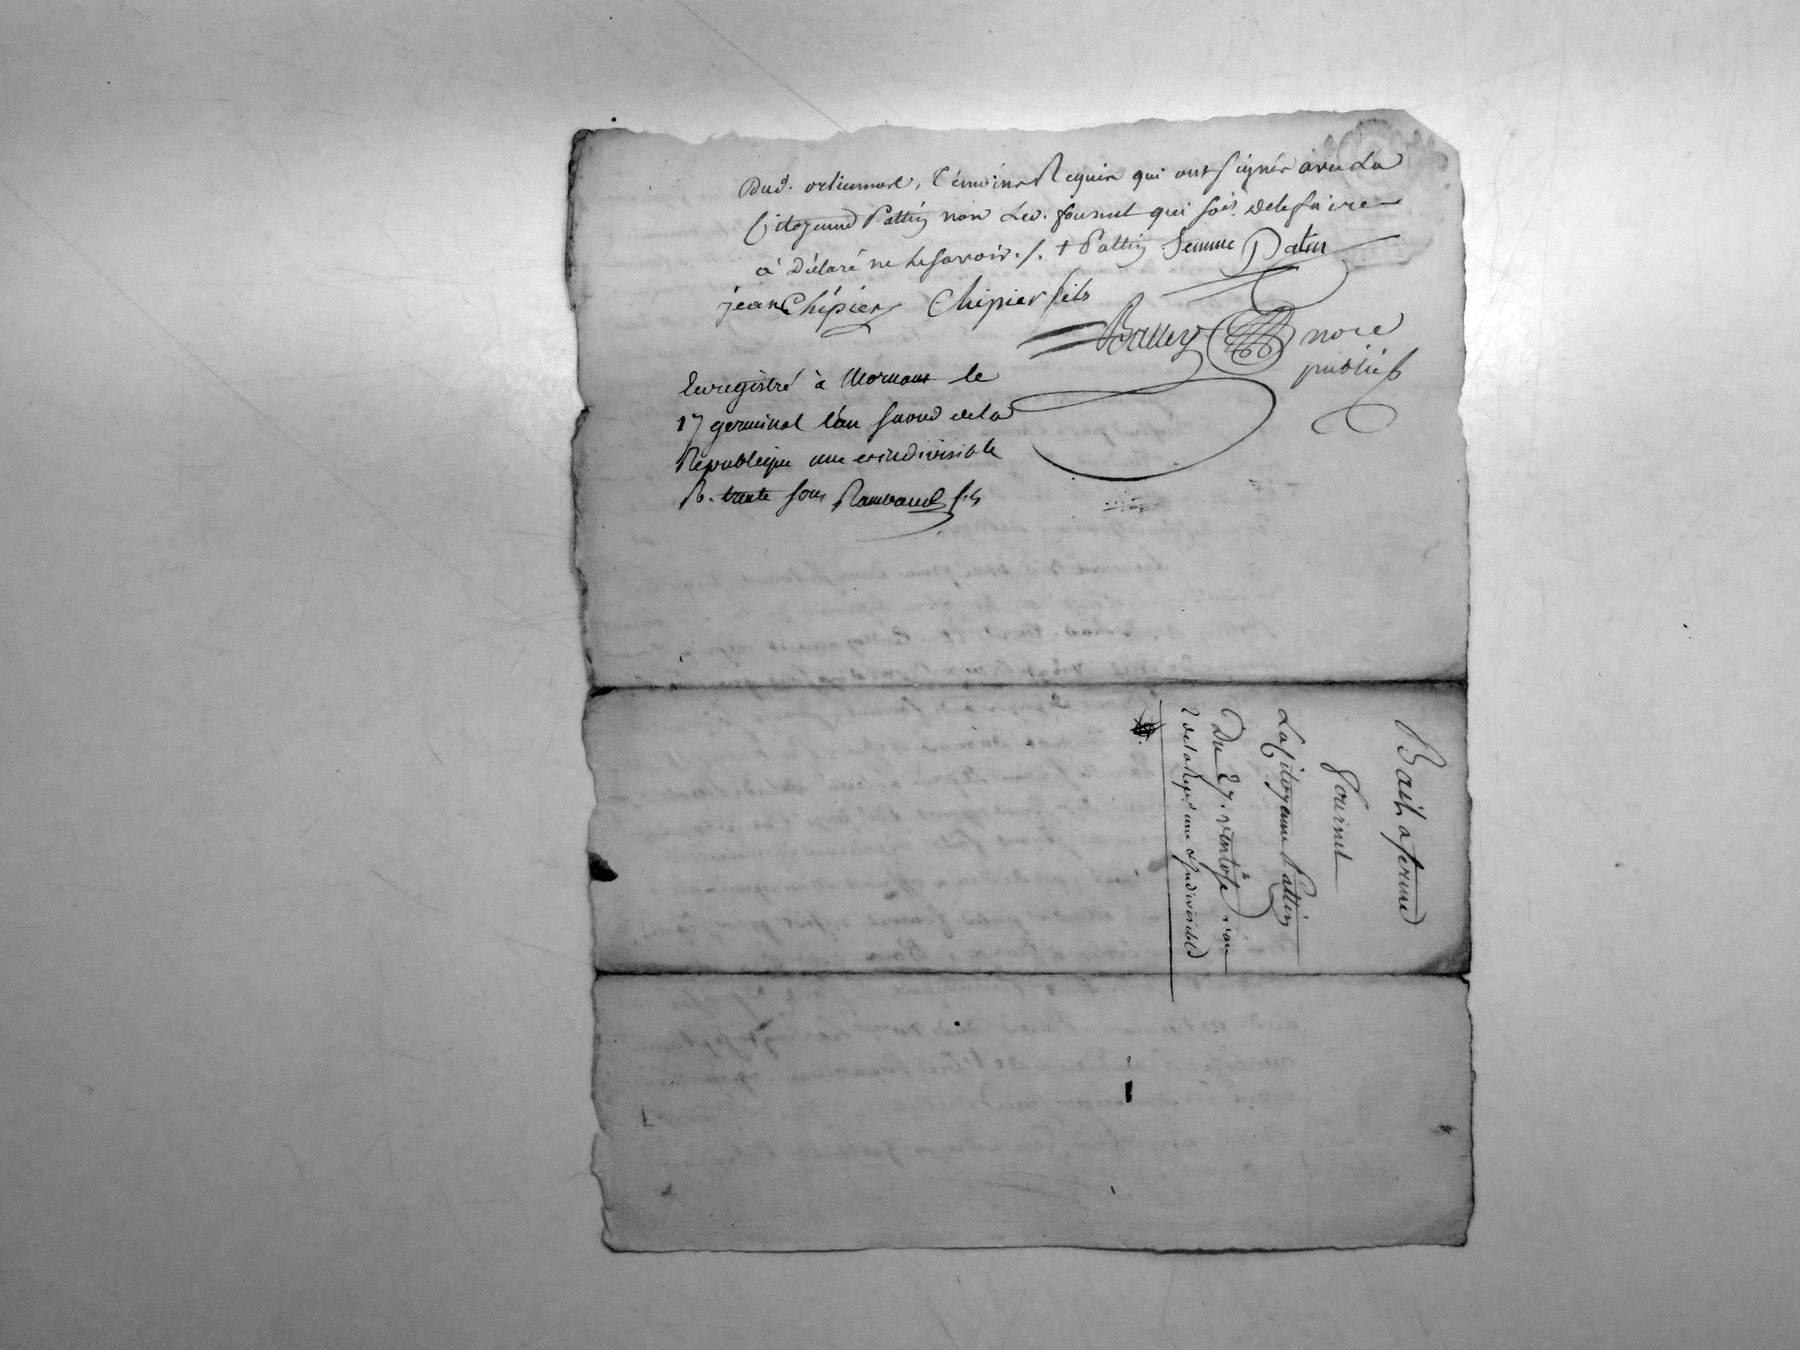 Dud. ortiennard, Témoins Requis qui ont signés avec La
Citoyenne Pattin non Led. fournel qui de le faire
a Déclaré ne le savoir ./. + Pattin femme Patin
jean Chipier Chipier fils
not.re
public
Enregistré à Mornant le
17 germinal l'an second de la
République une et indivisible
R. trente sous Rambaud fils
Bail a ferme
fournel
La Citoyenne Pattin
Du 27. ventôse l'an
2 de la Repu. une & indivisible